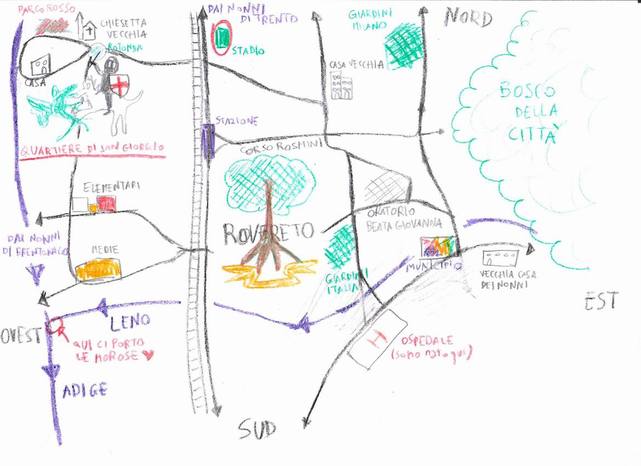 PARCO ROSSO
CHIESETTA
VECCHIA
ROTONDA
CASA
QUARTIERE DI SAN GIORGIO
DAI NONNI
DI TRENTO
STADIO
GIARDINI
MILANO
NORD
CASA VECCHIA
BOSCO
DELLA
CITTÀ
STAZIONE
CORSO ROSMINI
ELEMENTARI
ROVERETO
ORATORIO
BEATA GIOVANNA
DAI NONNI
DI BRENTONICO
MEDIE
GIARDINI
ITALIA
MUNICIPIO
VECCHIA CASA
DEI NONNI
EST
OVEST
LENO
QUI CI PORTO
LE MOROSE
OSPEDALE
(sono nato qui)
H
ADIGE
SUD